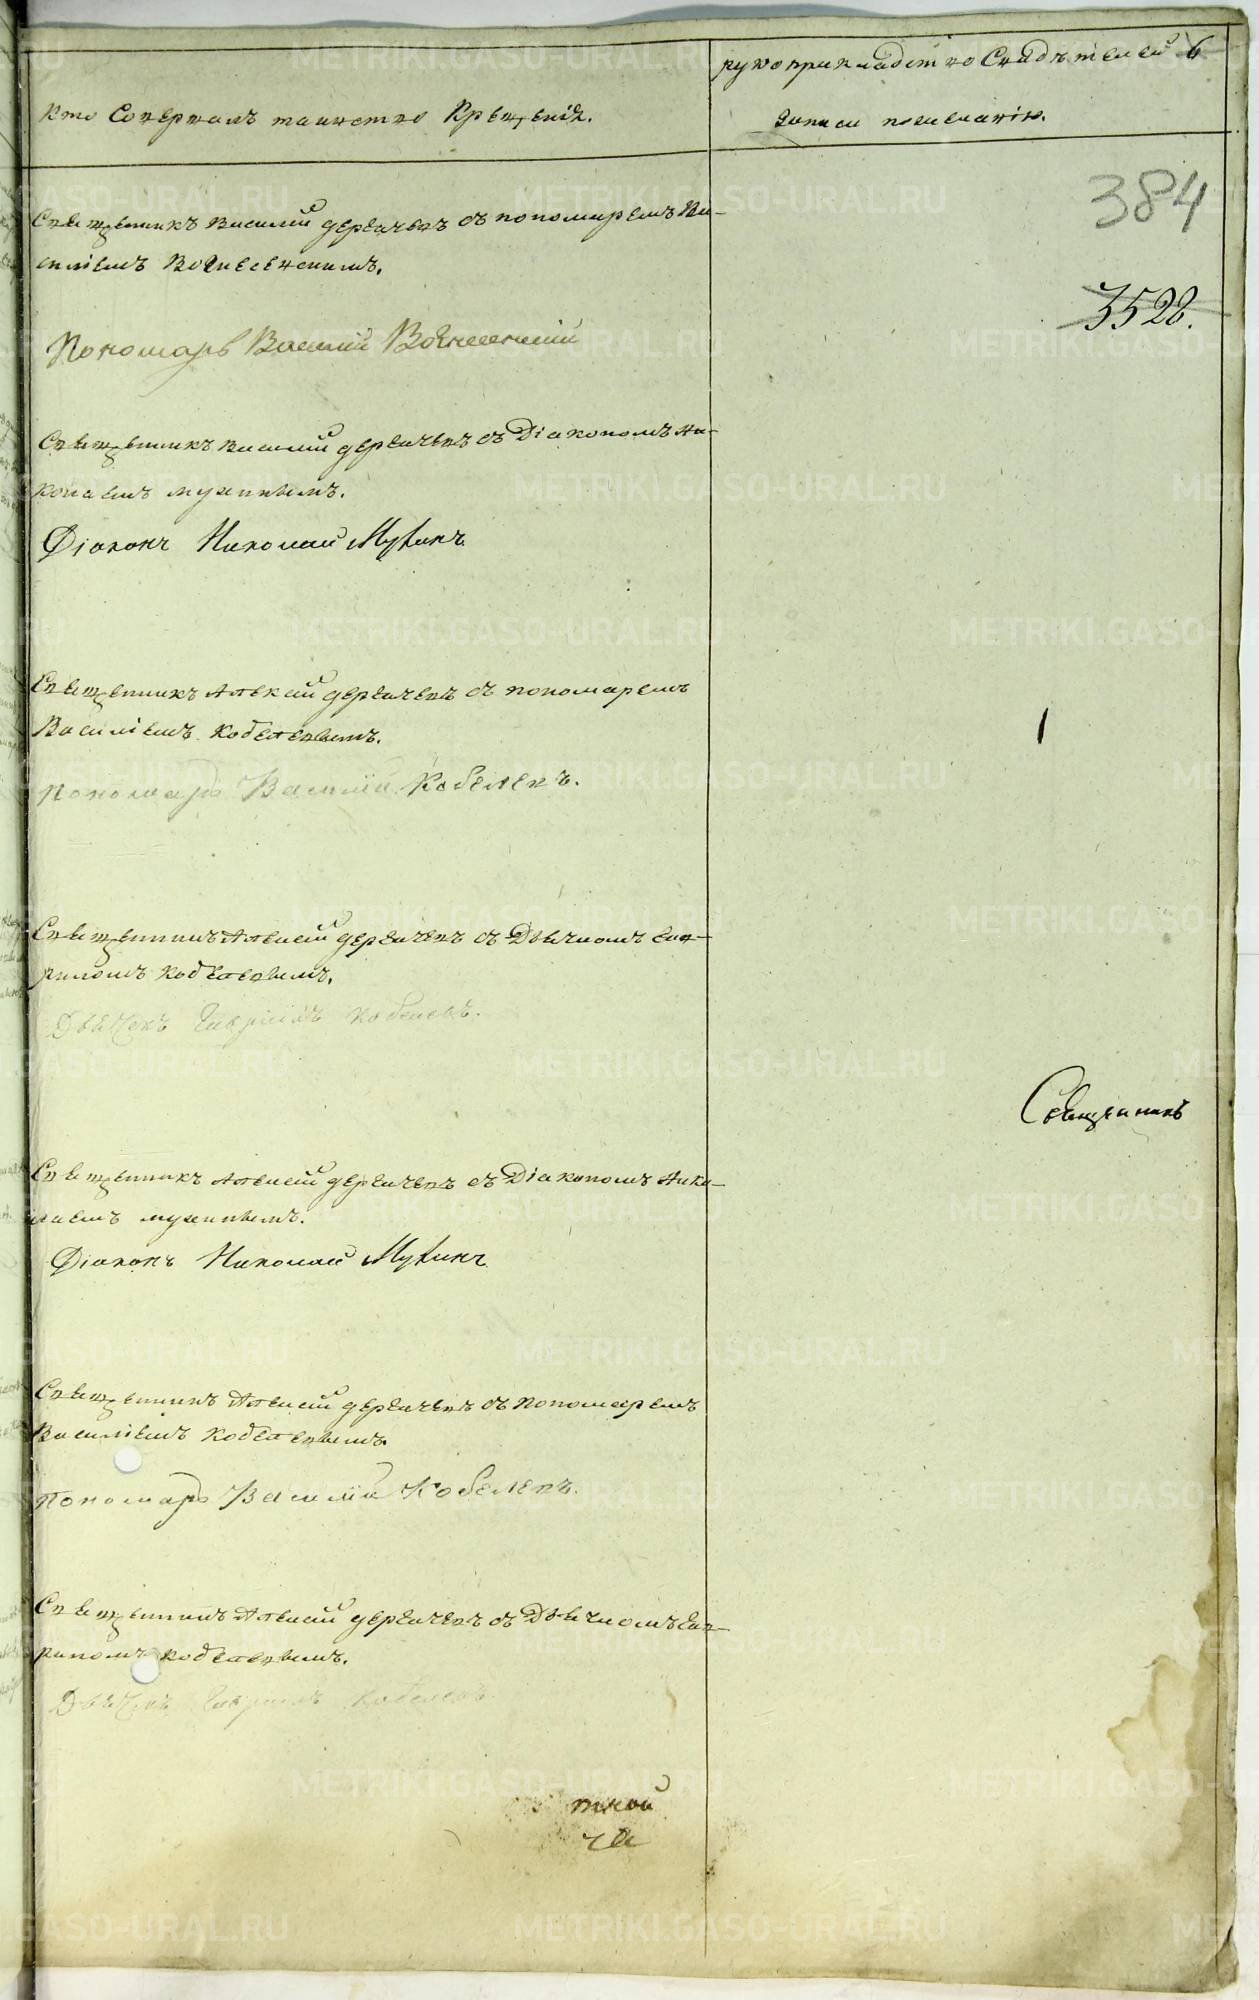 Кто Совершалъ таинство Крещенія.
рукоприкладство Свидѣтелей
записи по желанію.
6
384
3528.
Священникъ Василий Дерачевъ съ пономаремъ Ва-
силіемъ Вознесенскимъ.
Пономарь Василій Вознесенскій
Священникъ Василий Дерачевъ съ Діакономъ Ни-
колаемъ Мухинымъ.
Діаконъ Николай Мухинъ
Священникъ Алексій Дерачевъ съ пономаремъ
Василіемъ Кобелевымъ.
Пономарь Василій Кобелевъ.
Священникъ Алексій Дерачевъ съ Дьячкомъ Гав-
риломъ Кобелевымъ.
Дьячекъ Гаврілъ Кобелевъ.
Священникъ
Священникъ Алексій Дерачевъ съ Діакономъ Нико-
лаемъ Мухинымъ.
Діаконъ Николай Мухинъ
Священникъ Алексій Дерачевъ съ Пономаремъ
Василіемъ Кобелевымъ.
Пономарь Василій Кобелевъ.
Священникъ Алексій Дерачевъ съ Дьячкомъ Гав-
риломъ Кобелевымъ.
Дьячекъ Гаврілъ Кобелевъ
METRIKI.GASO-URAL.RU